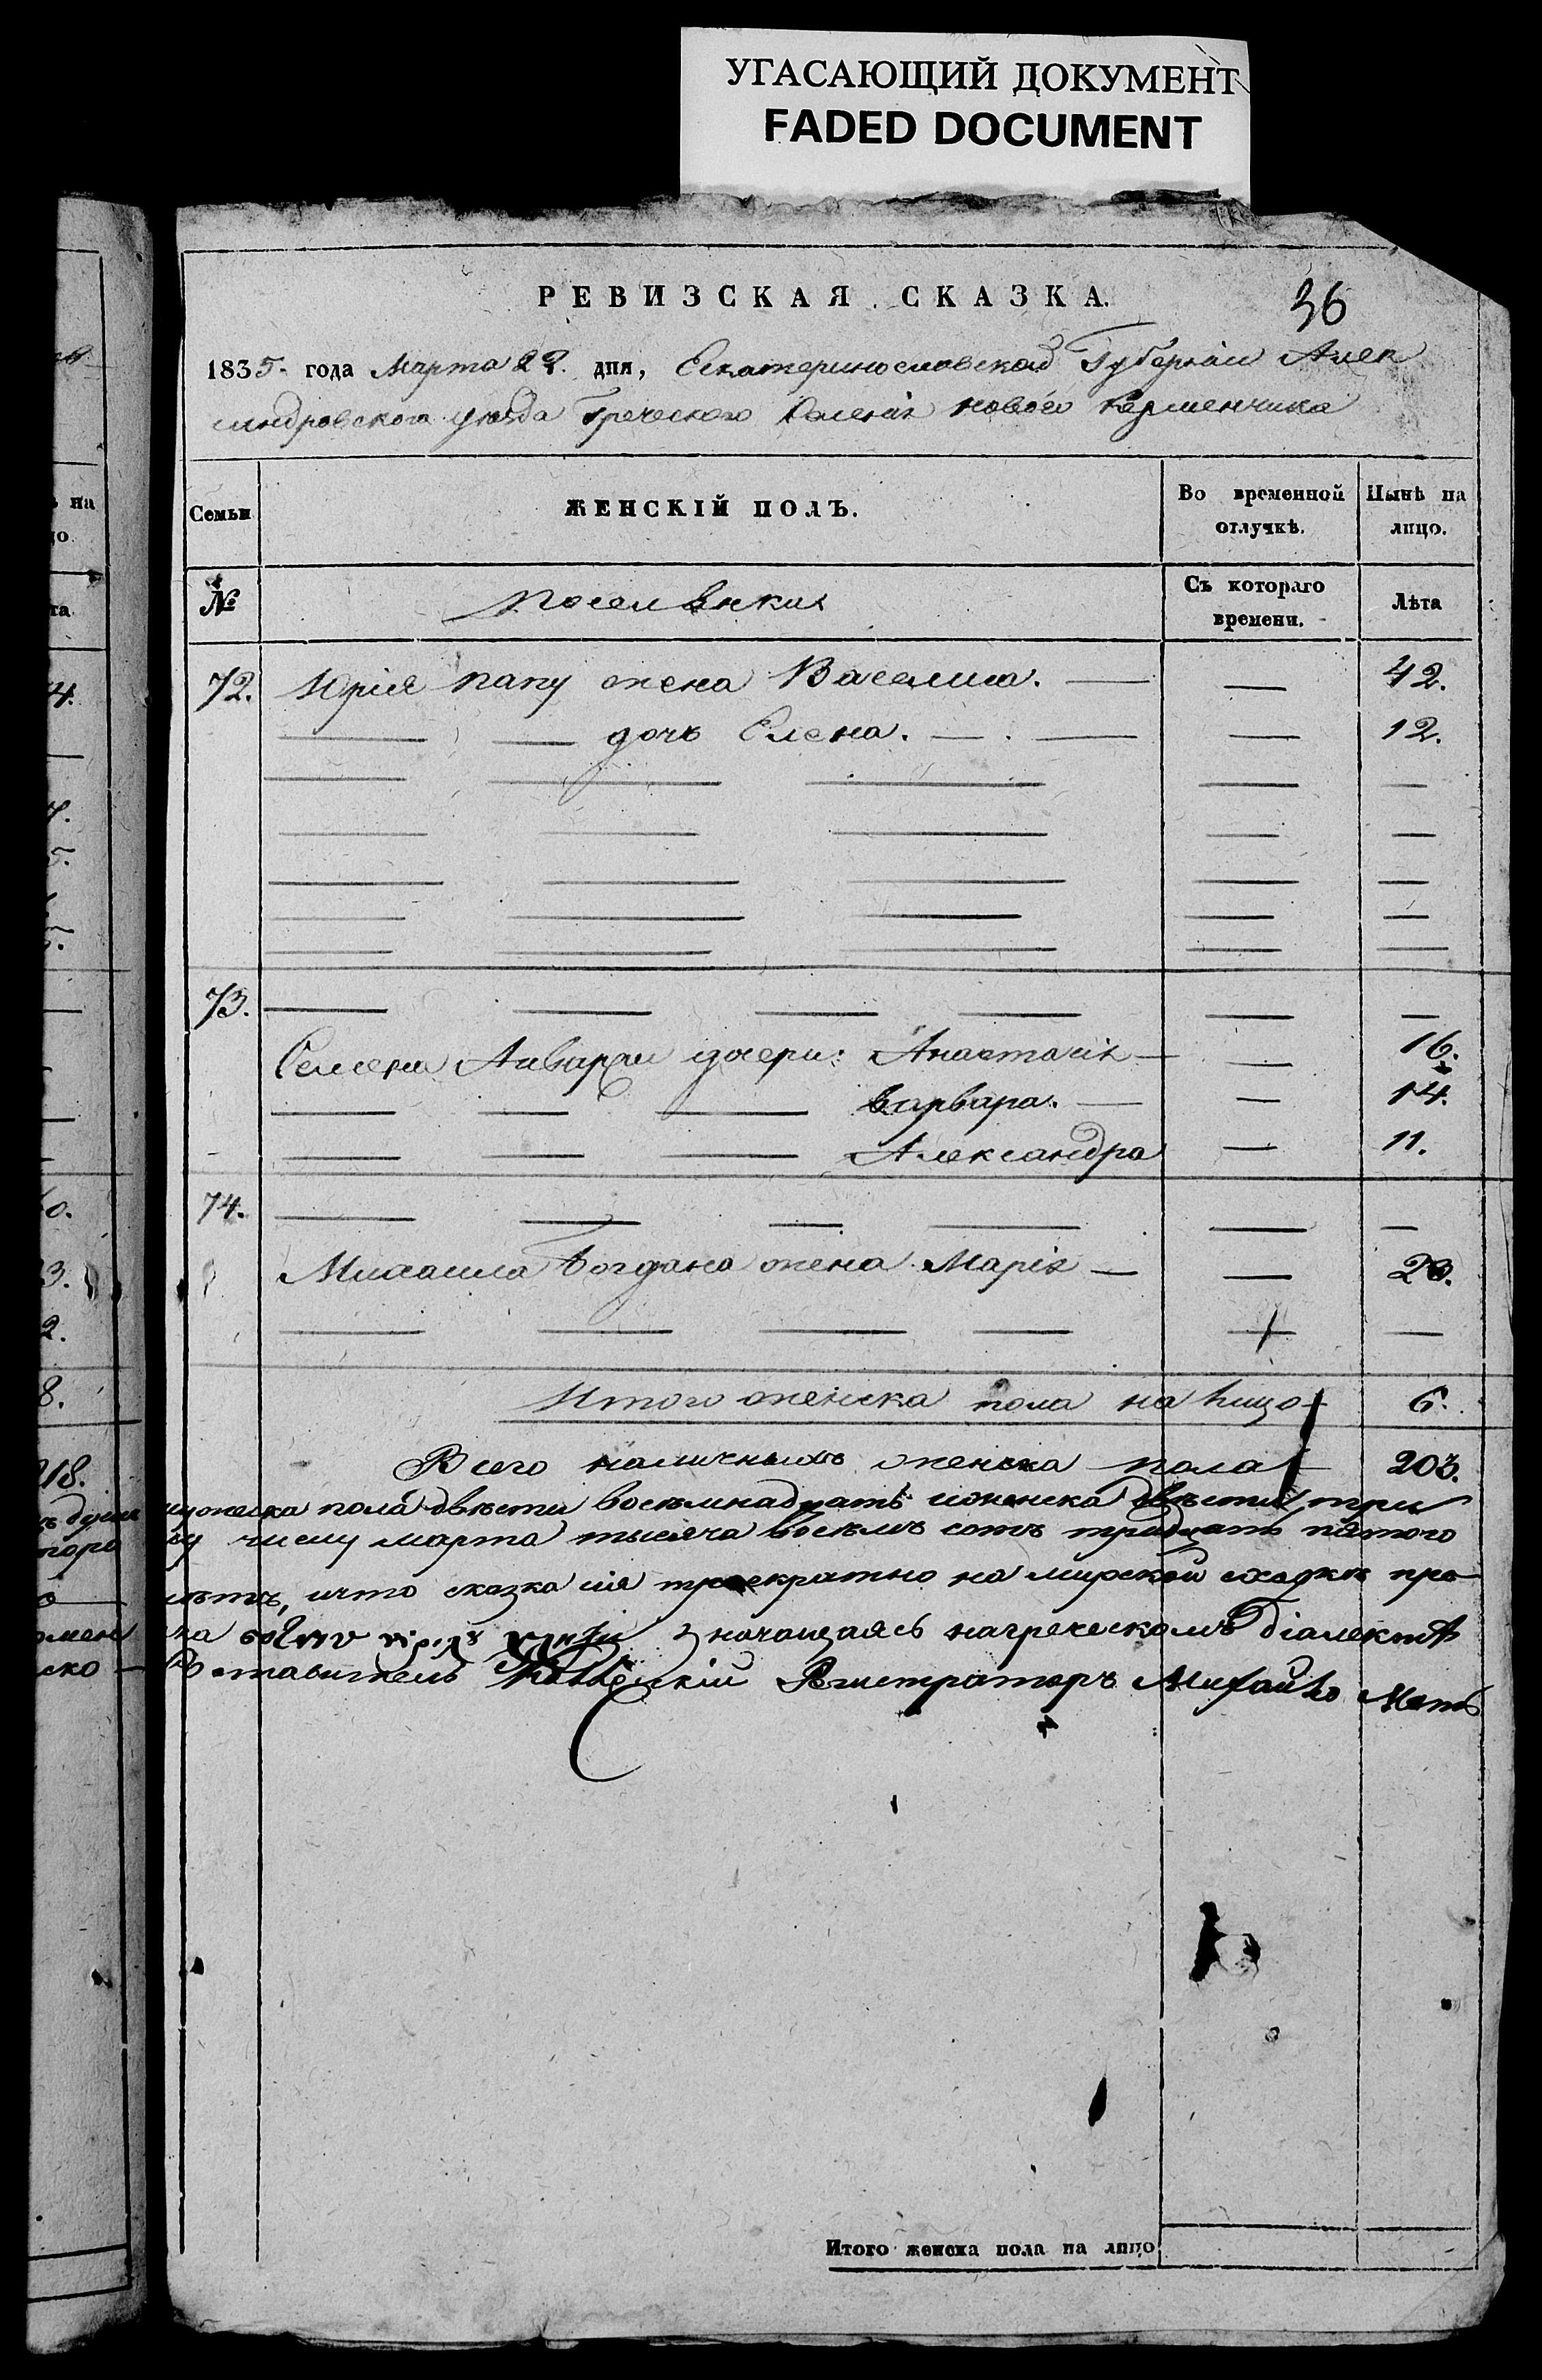 УГАСАЮЩИЙ ДОКУМЕНТ
FADED DOCUMENT
РЕВИЗСКАЯ СКАЗКА.
36
1835. года Марта 22. дня, Екатеринославской Губерніи Алек
сандровского уезда Греческого Селенія нового Керменчика
Семьи
ЖЕНСКІЙ ПОЛЪ.
Во временной отлучкѣ.
Нынѣ на лицо.
№
Поселянкия
Съ котораго времени.
Лѣта
72. Юрія папу жена Василиса. — — 42.
дочь Елена. — — 12.
73.
Семена дочери: Анастасія — — 16.
варвара. — — 14.
Александра — 11.
74.
Михаила Богдана жена Марія — —
Итого женска пола на лицо 6.
Всего наличныхъ женска пола 203.
мужеска пола двѣсти восемнадцать и женска двѣсти три
числу марта тысяча восемь сотъ тридцать пятого
что сказка сія троекратно на мирской сходкѣ про
значащаясь нагреческомъ діалектѣ
Регистраторъ Михайло
Итого женска пола на лицо